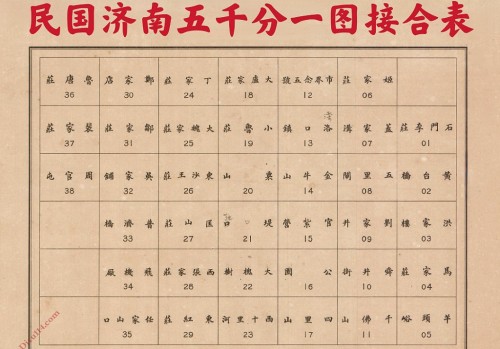 民国济南五千分一图接合表
姬家莊 市界念五號 大盧家莊 丁家莊 鄭家店 魯唐莊
06 12 18 24 30 36
石門李莊 蓋家溝 洛口鎮 小魯莊 大魏家莊 鄭家莊 裴家莊
01 07 13 19 25 31 37
黃台橋 五里閘 金牛山 栗山 東沙王莊 吳家鋪 周官屯
02 08 14 20 26 32 38
洪家樓 劉家井 官紮營 堤口 匡山莊 普濟橋
03 09 15 21 27 33
馬家莊 舜井街 公園 大槐樹 西張家莊 飛機廠
04 10 16 22 28 34
羊頭峪 千佛山 四里山 西十里河 東紅莊 任家山口
05 11 17 23 29 35